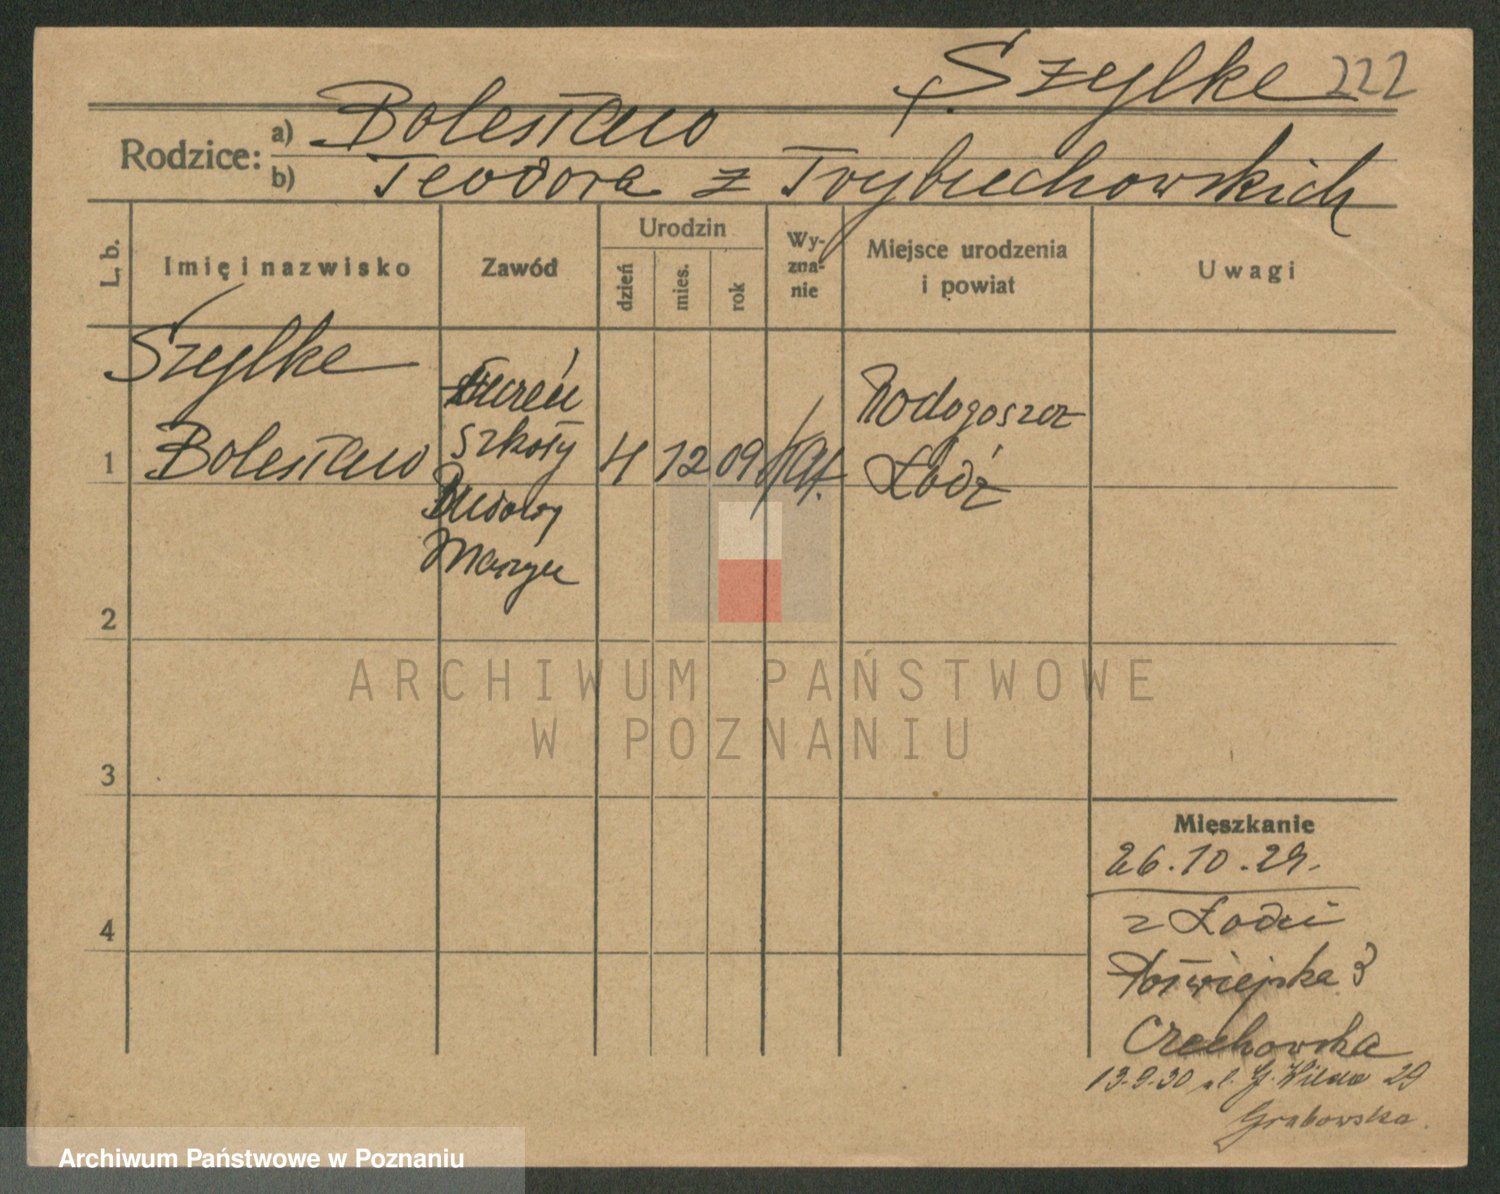 Szylke 222
Rodzice: a) Bolesław
b) Teodora z Trybuchowskich
L. b. Imię i nazwisko Zawód Urodzin dzień mies. rok Wy-zna-nie Miejsce urodzenia i powiat Uwagi
Szylke
Bolesław
uczeń
szkoły
Budowy
Maszyn
1 4 12 09 kat.
Radogoszcz
Łódź
2
3
4
ARCHIWUM PAŃSTWOWE
W POZNANIU
Mieszkanie
26.10.29.
z Łodzi
3
Czechowska
13.9.30 ul. G. Wilda 29
Grabowska.
Archiwum Państwowe w Poznaniu